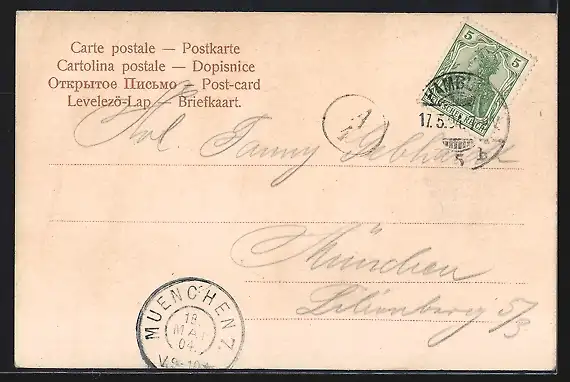 Carte postale — Postkarte
Cartolina postale — Dopisnice
Открытое Письмо — Post-card
Levelezö-Lap. — Briefkaart.
5 5
DEUTSCHES REICH
HAMBURG
17.5.04
5 b
A
Frl. Fanny Gebhardt
München
Lilienberg 5/3
MUENCHEN 7.
18
MAI
04